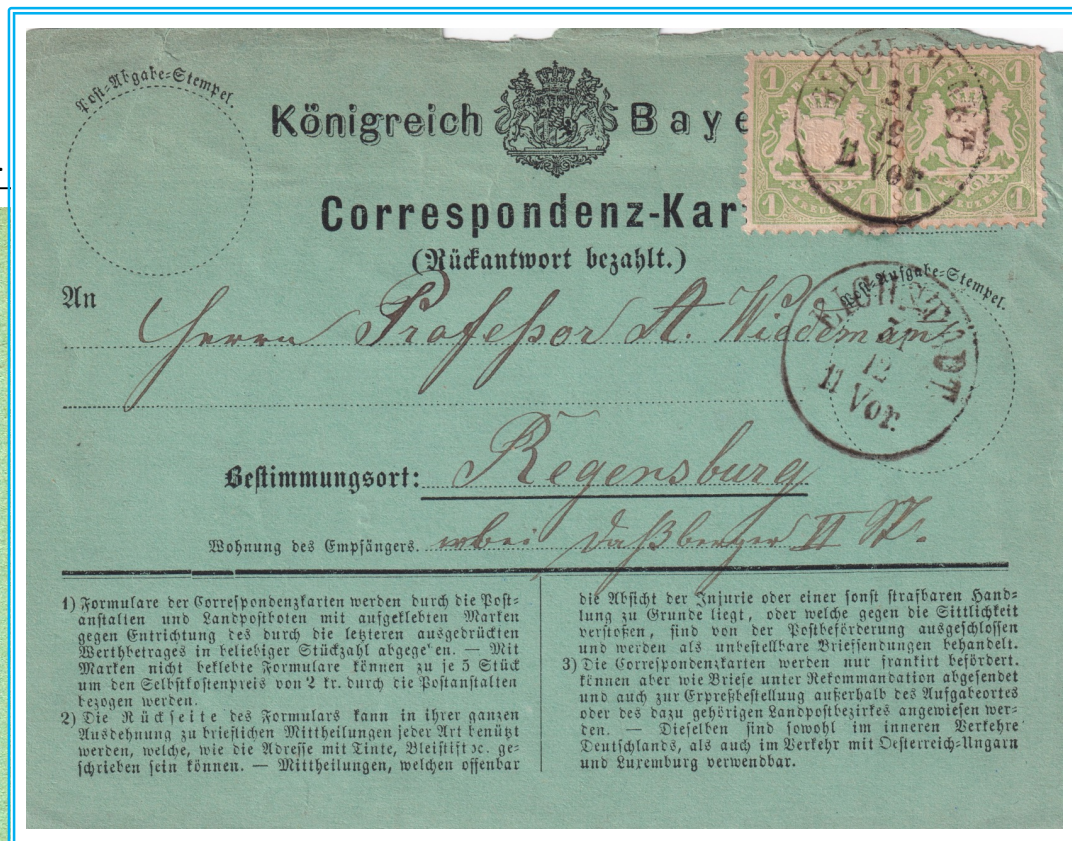 Post-Abgabe-Stempel.
Königreich Baye
Correspondenz-Kar
(Rückantwort bezahlt.)
1 1
1 1
1 1
1 1
31
12
11 Vor.
Post-Aufgabe-Stempel.
EICHSTADT
31
12
11 Vor.
An Herrn Professor A. Wiedemann
Bestimmungsort: Regensburg
Wohnung des Empfängers. II St.
1) Formulare der Correspondenzkarten werden durch die Post-
anstalten und Landpostboten mit aufgeklebten Marken
gegen Entrichtung des durch die letzteren ausgedrückten
Werthbetrages in beliebiger Stückzahl abgege'en. — Mit
Marken nicht beklebte Formulare können zu je 5 Stück
um den Selbstkostenpreis von 2 kr. durch die Postanstalten
bezogen werden.
2) Die Rückseite des Formulars kann in ihrer ganzen
Ausdehnung zu brieflichen Mittheilungen jeder Art benützt
werden, welche, wie die Adresse mit Tinte, Bleistift ꝛc. ge-
schrieben sein können. — Mittheilungen, welchen offenbar
die Absicht der Injurie oder einer sonst strafbaren Hand-
lung zu Grunde liegt, oder welche gegen die Sittlichkeit
verstoßen, sind von der Postbeförderung ausgeschlossen
und werden als unbestellbare Briefsendungen behandelt.
3) Die Correspondenzkarten werden nur frankirt befördert.
können aber wie Briefe unter Rekommandation abgesendet
und auch zur Expreßbestellung außerhalb des Aufgabeortes
oder des dazu gehörigen Landpostbezirkes angewiesen wer-
den. — Dieselben sind sowohl im inneren Verkehre
Deutschlands, als auch im Verkehr mit Oesterreich-Ungarn
und Luxemburg verwendbar.